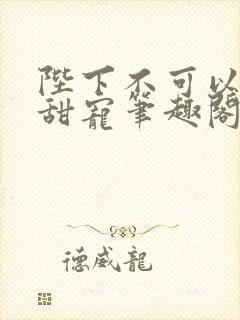 陛下不可以
甜寵筆趣閣
德威龍